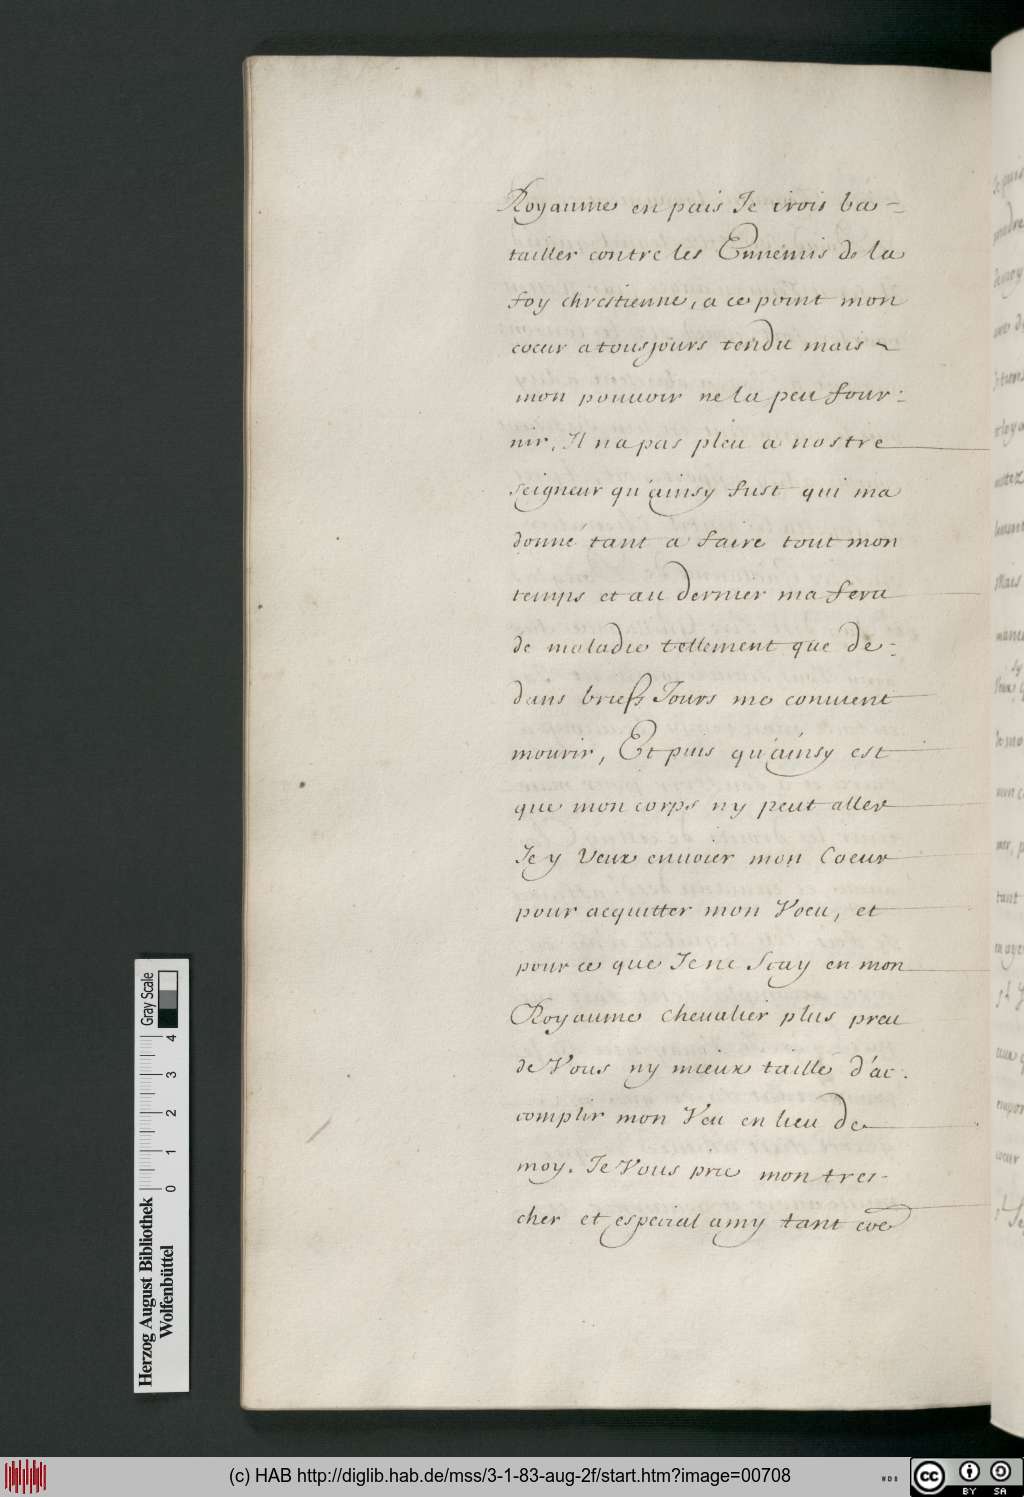 Royaume en pais Je irois ba-
tailler contre les Ennemis de la
foy chrestienne, a ce point mon
coeur a tousjours tendu mais
mon pouuoir ne la peu four-
nir. Il na pas pleu a nostre
seigneur qu'ainsy fust qui ma
donné tant a faire tout mon
temps et au dernier ma feru
de maladie tellement que de-
dans briefs Jours me conuient
mourir, Et puis qu'ainsy est
que mon corps ny peut aller
Je y veux enuoier mon Coeur
pour acquitter mon Voeu, et
pour ce que Je ne Scay en mon
Royaume cheualier plus preu
de Vous ny mieux taillé d'ac-
complir mon Veu en lieu de
moy. Je Vous prie mon tres-
cher et especial amy tant coe
Herzog August Bibliothek
Wolfenbüttel
0 1 2 3 4
Gray Scale
(c) HAB http://diglib.hab.de/mss/3-1-83-aug-2f/start.htm?image=00708
WDB
CC BY SA